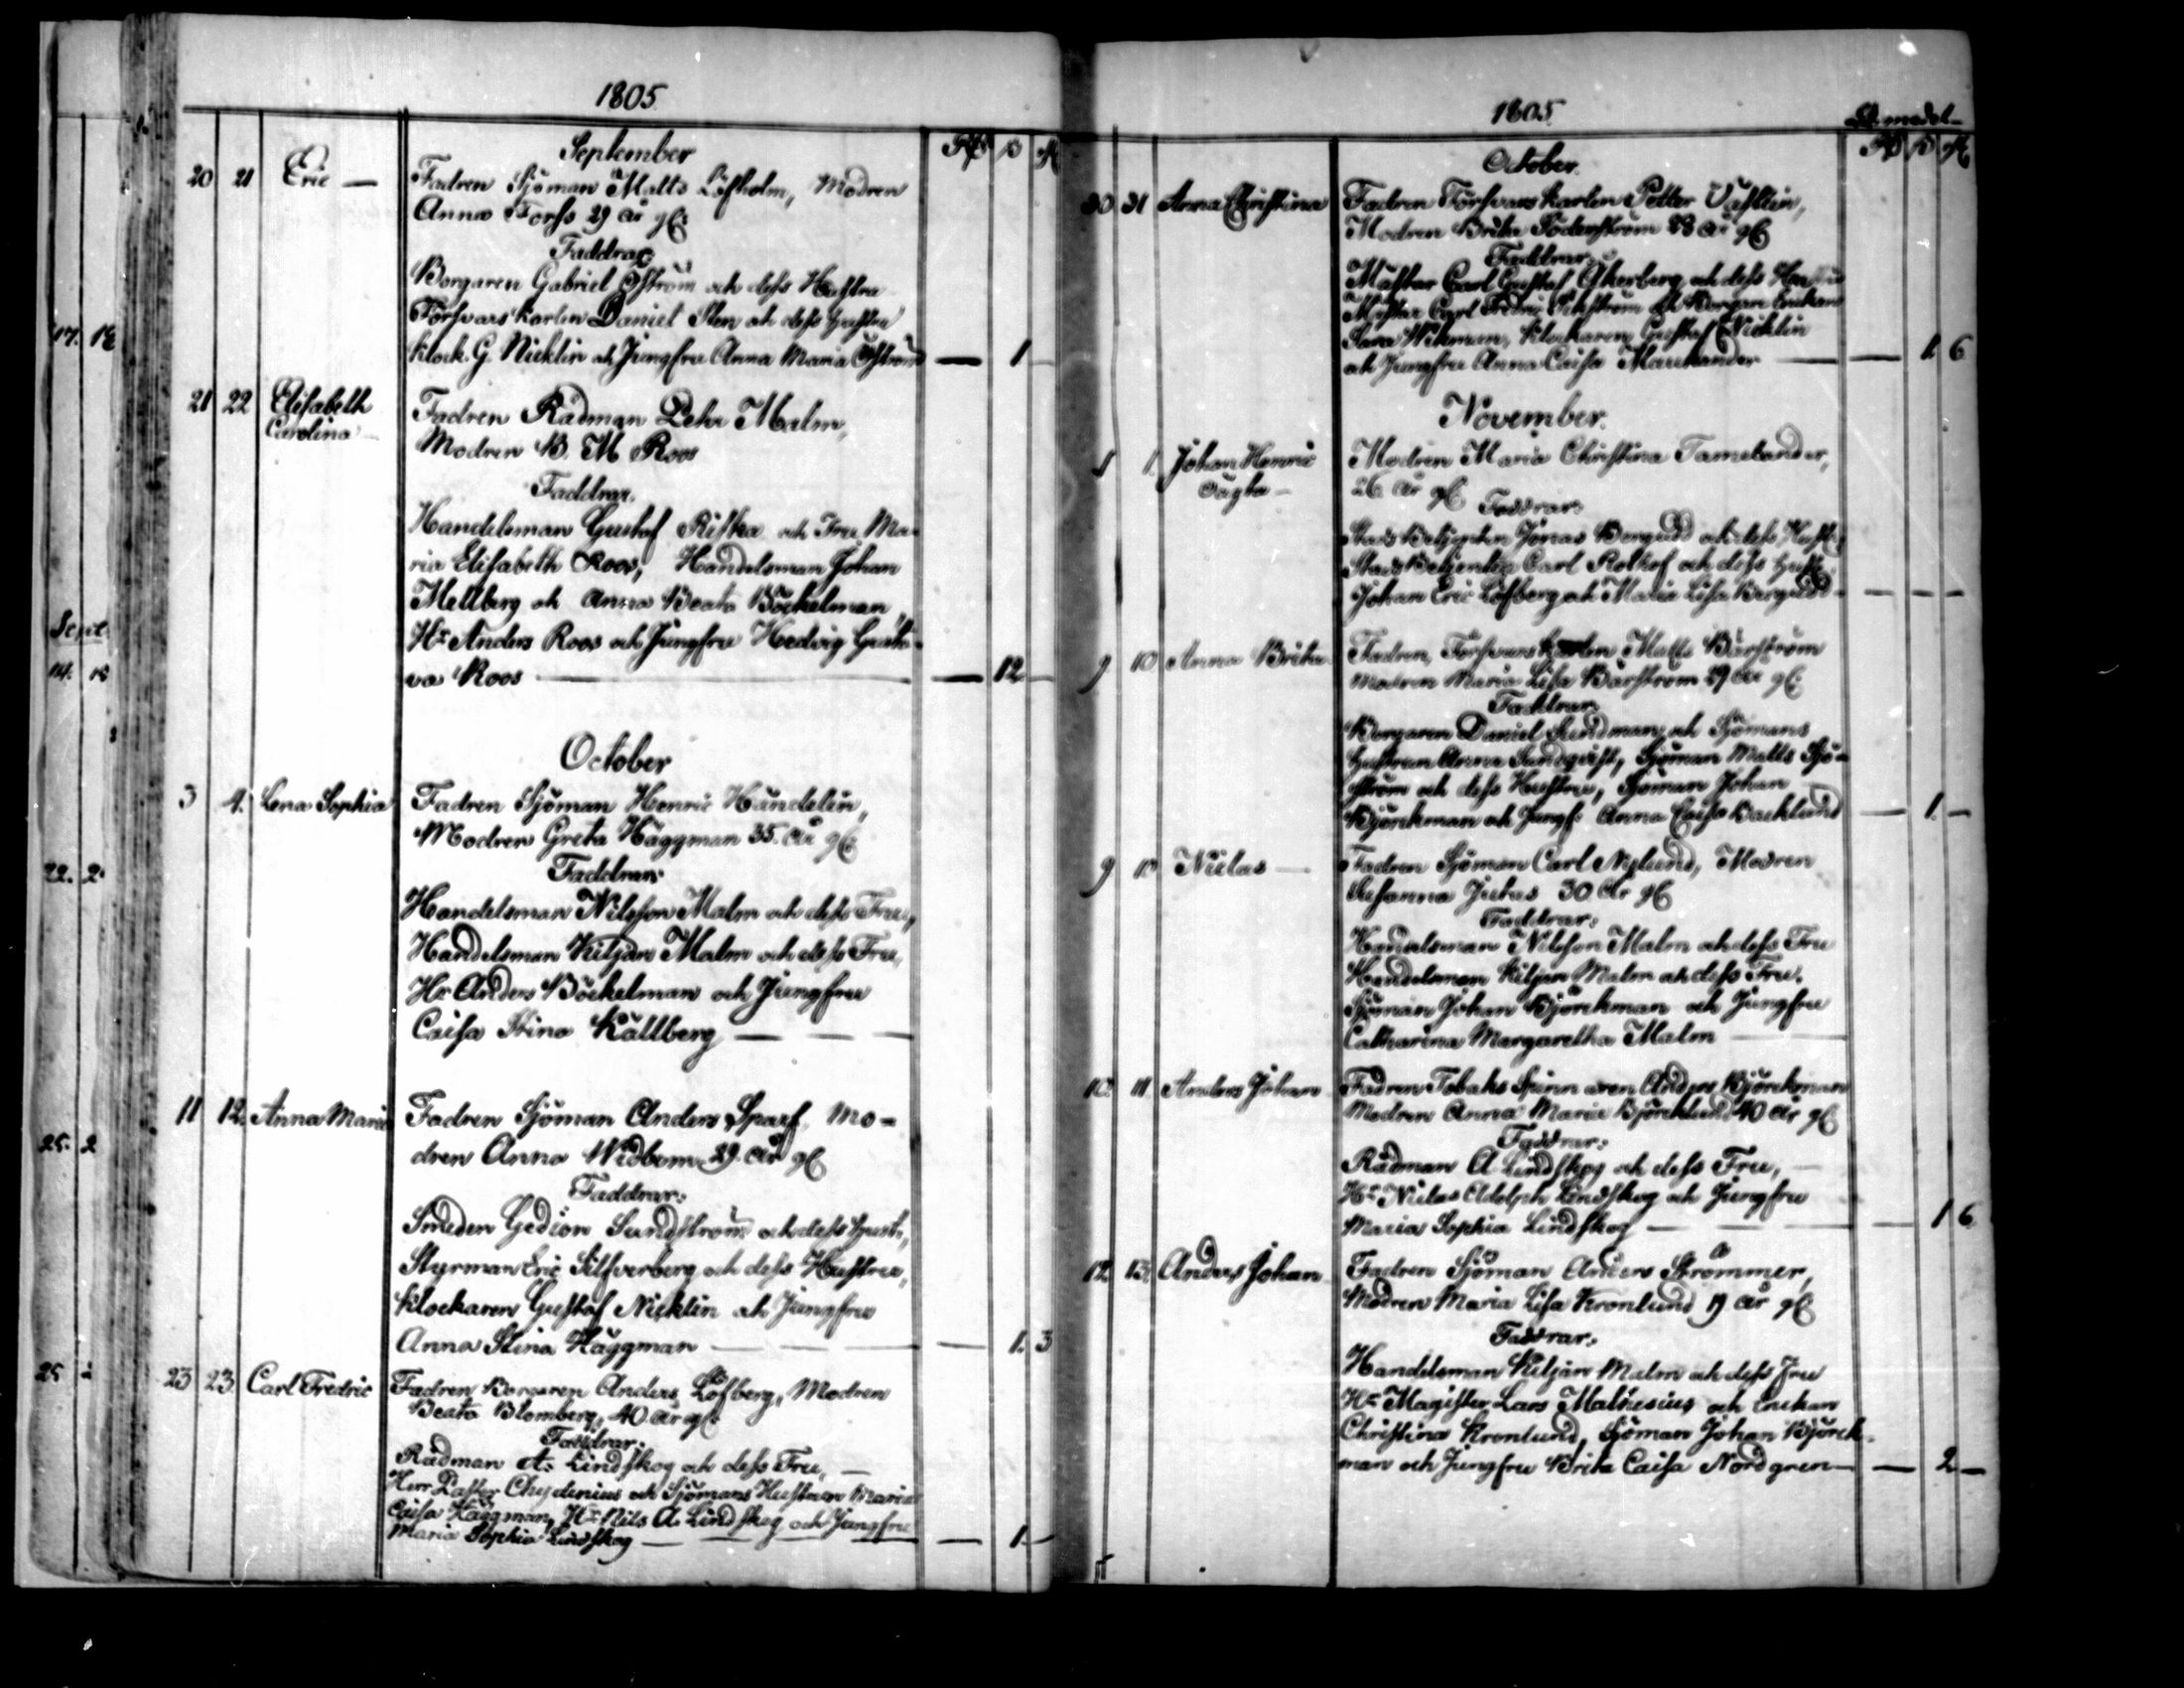 1805
September
20 21 Eric — Fadren Sjöman Matts Löfholm, Modren
Anna Forss 29 år gl:
Faddrar
Borgaren Gabriel Öström och dess Hustru
Försvarskarlen Daniel Sten och dess Hustru
Klock. G. Nicklin och Jungfru Anna Maria Öström — 1 —
21 22 Elisabeth Fadren Rådman Pehr Malm,
Carolina — Modren B. M Roos
Faddrar.
Handelsman Gustaf Riska och Fru Ma-
ria Elisabeth Roos, Handelsman Johan
Mellberg och Anna Beata Böckelman,
Hr Anders Roos och Jungfru Hedvig Gusta-
va Roos — 12 —
October
3 4. Lena Sophia Fadren Sjöman Henric Håndelin,
Modren Greta Häggman 35. år gl:
Faddrar:
Handelsman Nilsson Malm och dess Fru,
Handelsman Kiljan Malm och dess Fru,
Hr Anders Böckelman och Jungfru
Caisa Stina Källberg — — —
11 12. Anna Maria Fadren Sjöman Anders Sparf, Mo-
dren Anna Widbom 29. år gl:
Faddrar:
Smeden Gedion Sundström och dess Hust:,
Styrman Eric Silfverberg och dess Hustru,
Klockaren Gustaf Nicklin och Jungfru
Anna Stina Häggman — — 1. 3
23 23 Carl Fredric Fadren Borgaren Anders Löfberg, Modren
Beata Blomberg, 40 år gl:
Faddrar:
Rådman A. Lindskog och dess Fru, —
Herr Pastor Chydenius och Sjömans Hustrun Maria
Caisa Häggman, Hr Nils A. Lindskog och Jungfru
Maria Sophia Lindskog — — 1. —
17. 18
Sept
14.
22. 2
25. 2
25 2
1805
October.
30 31 Anna Christina Fadren Försvarskarlen Petter
Modren Brita Söderström 28 år gl:
Faddrar:
Mästar Carl Gustaf Åkerberg och dess Hustru
Mästar Carl Fredric och Borgare Enckan
Sara Wikman, Klockaren Gustaf Nicklin
och Jungfru Anna Caisa — — 1. 6
November.
1 1. Johan Henric Modren Maria Christina Tamelander,
26. år gl:
Faddrar:
Stads Betjenten Jonas Bergudd och dess Hustr:
Stads Betjenten Carl Rolhof och dess Hustr:
Johan Eric Löfberg och Maria Lisa Bergudd — — — —
9 10 Anna Brita Fadren, Försvarskarlen Matts Bärström
Modren Maria Lisa Bärström 29 år gl:
Faddrar
Borgaren Daniel Sundman och Sjömans
Hustrun Anna Sundqvist, Sjöman Matts Sjö-
ström och dess Hustru, Sjöman Johan
Björckman och Jungf: Anna Caisa Backlund — 1. —
9 10 Niclas — Fadren Sjöman Carl Nylund, Modren
Susanna Jutas 30 år gl:
Faddrar:
Handelsman Nilsson Malm och dess Fru
Handelsman Kiljan Malm och dess Fru.
Sjöman Johan Björckman och Jungfru
Catharina Margaretha Malm —
10. 11. Anders Johan Fadren Tobaks Spinnaren Anders Björckman
Modren Anna Maria Björcklund 40 år gl:
Faddrar:
Rådman A. Lindskog och dess Fru, —
Hr Niclas Adolph Lindskog och Jungfru
Maria Sophia Lindskog — — 1 6
12. 13. Anders Johan Fadren Sjöman Anders Strömmer,
Modren Maria Lisa Kronlund 19 år gl:
Faddrar:
Handelsman Kiljan Malm och dess Fru
Hr Magister Lars Mathesius, och Enckan
Christina Kronlund, Sjöman Johan Björck-
man och Jungfru Brita Caisa Nordgren — — 2 —